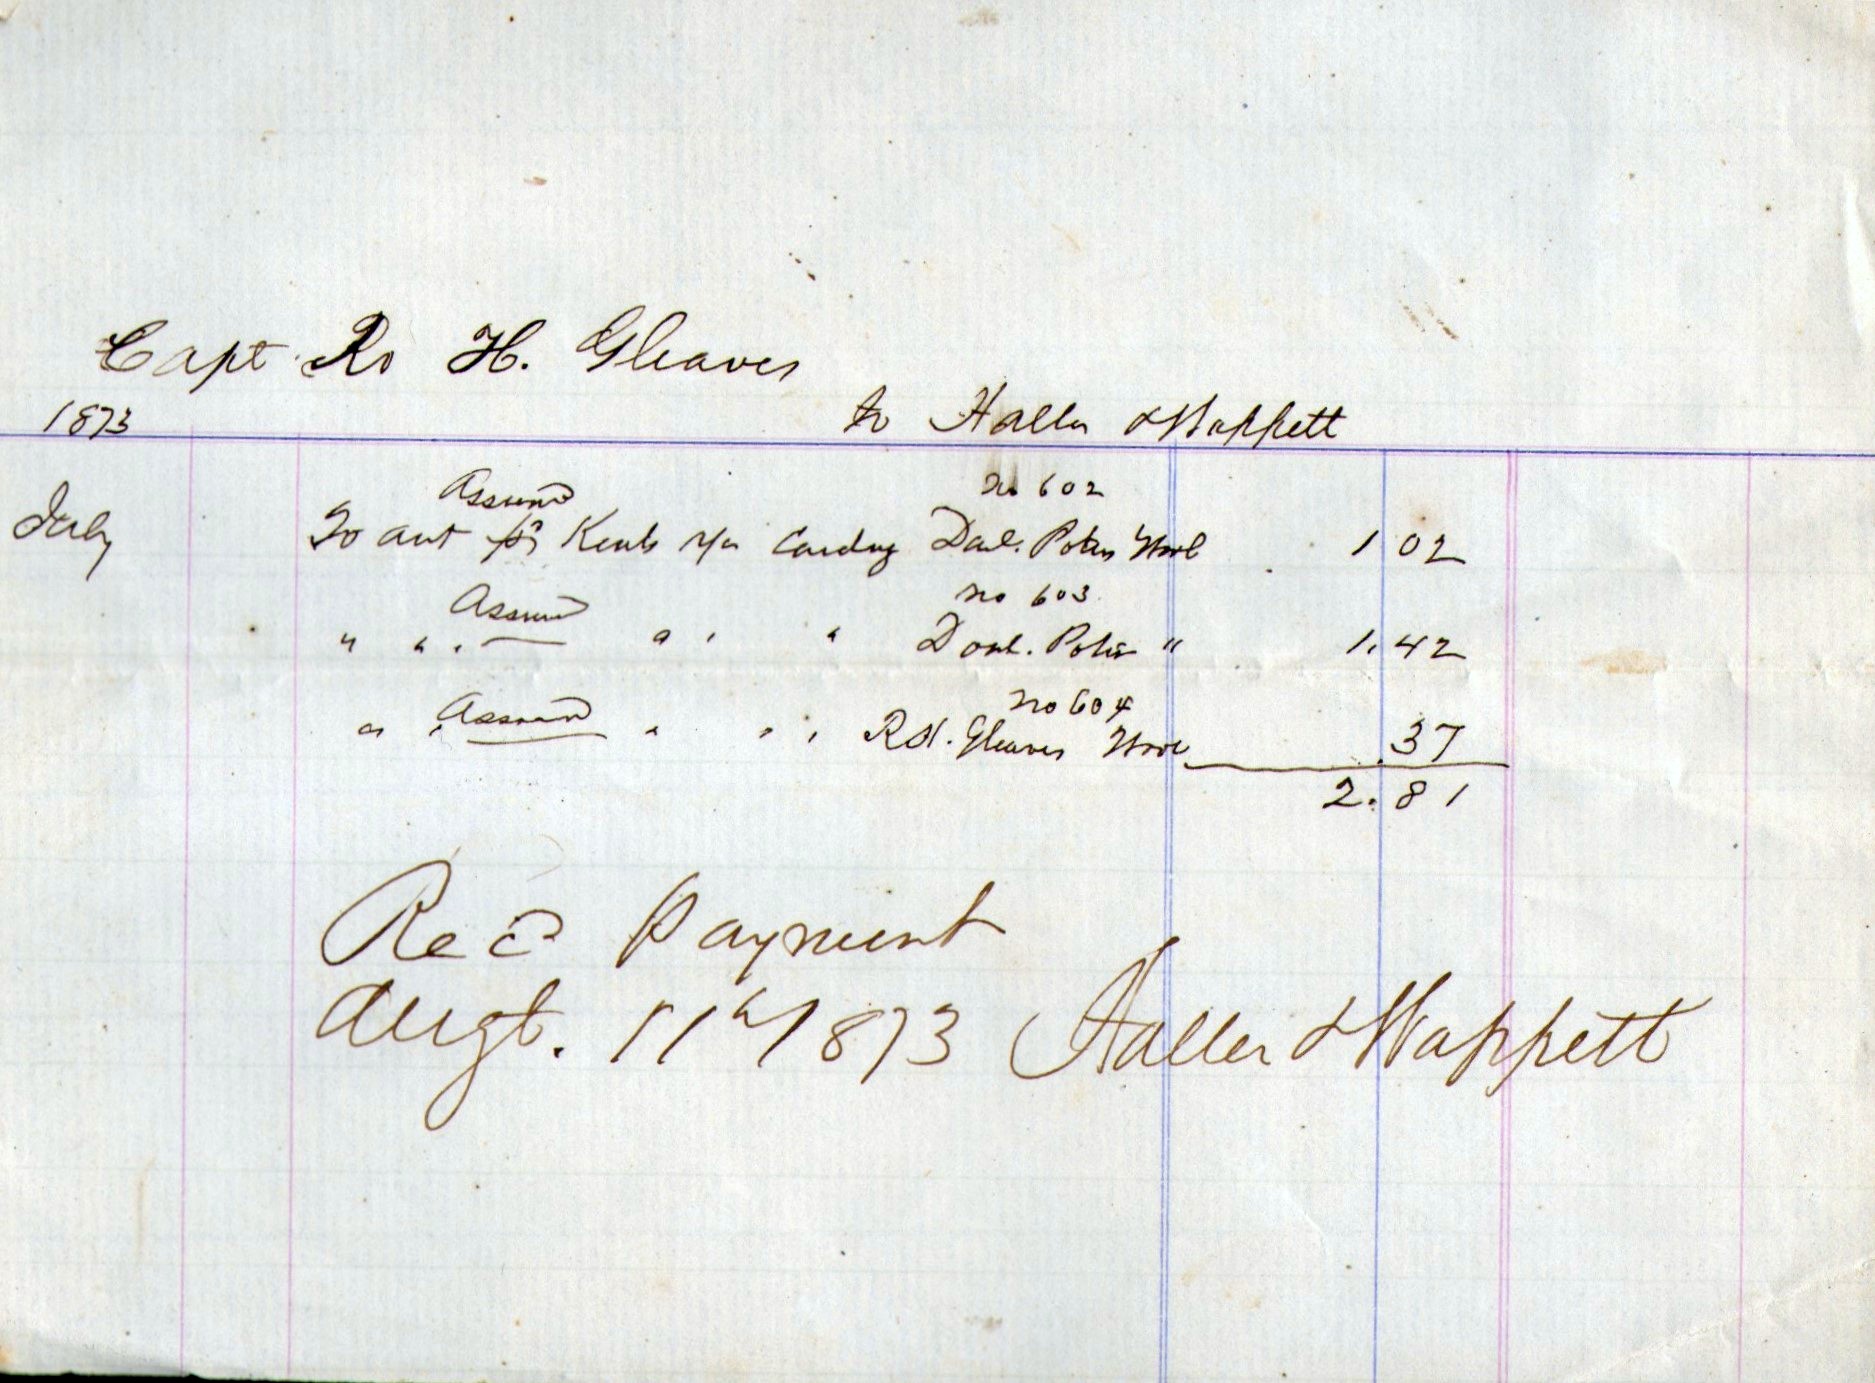 Capt Ro H. Gleaves
1873 to Haller & Wappett
Assumd no 602
July To amt pr Kents for Carding Danl. Peters Wool 1 02
Assumd no 603
" " " " " " Danl. Peters " 1.42
no 604
" " Assumd " " " R H. Gleaves Wool .37
2.81
Recd Payment
Augt. 11th 1873 Haller & Wappett